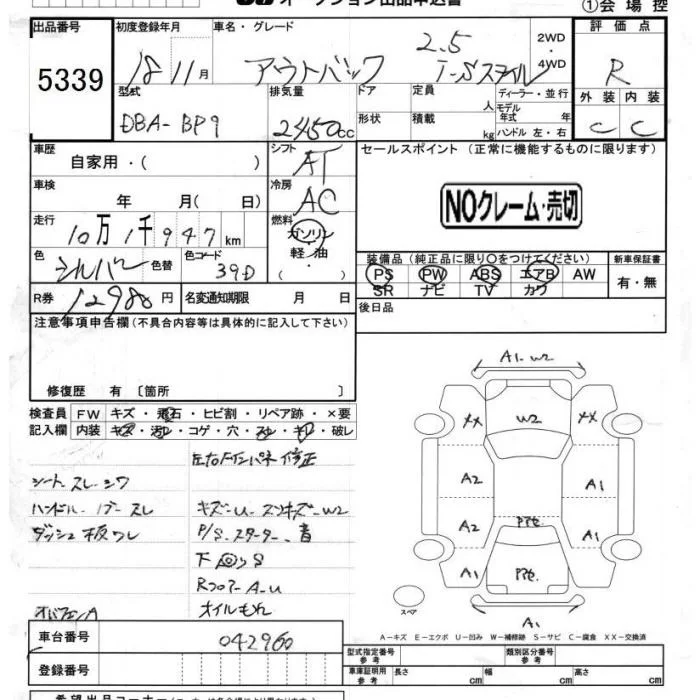 オークション出品申込書
①会場控
出品番号
5339
初度登録年月
18 11月
車名・グレード
アウトバック
2.5
I-Sスタイル
2WD
・
4WD
評価点
R
外装 内装
C C
型式
DBA-BP9
排気量
2450cc
ドア
形状
定員
人
積載
kg
ディーラー・並行
モデル
年式 年
ハンドル 左・右
車歴
自家用・( )
シフト
AT
セールスポイント (正常に機能するものに限ります)
NOクレーム・売切
車検
年 月( 日)
冷房
AC
走行
10万1千947km
燃料
ガソリン
・
軽油
( )
色
シルバー
色替
色コード
39D
装備品 (純正品に限り○をつけてください)
PS PW ABS エアB AW
SR ナビ TV カワ
新車保証書
有・無
R券
12980円
名変通知期限 月 日
後日品
注意事項申告欄(不具合内容等は具体的に記入して下さい)
修復歴 有 〔箇所 〕
検査員
記入欄
FW キズ・飛石・ヒビ割・リペア跡・×要
内装 キズ・汚レ・コゲ・穴・スレ・キレ・破レ
左右Fインパネ修正
シートスレ・シワ
ハンドル・ノブースレ
キズ-U スリキズ-W2
ダッシュ板ワレ
P/S.スターター.音
下回りS
Rフロアー A-U
オイルもれ
A1.W2
XX W2 XX
A2 A1
A2 Pte. A1
A1 Pte. A1
A1
スペア
A-キズ E-エクボ U-凹み W-補修跡 S-サビ C-腐食 XX-交換済
車台番号
042960
登録番号
型式指定番号
参考
類別区分番号
参考
車庫証明用
参考
長さ cm 幅 cm 高さ cm
希望出品コーナー